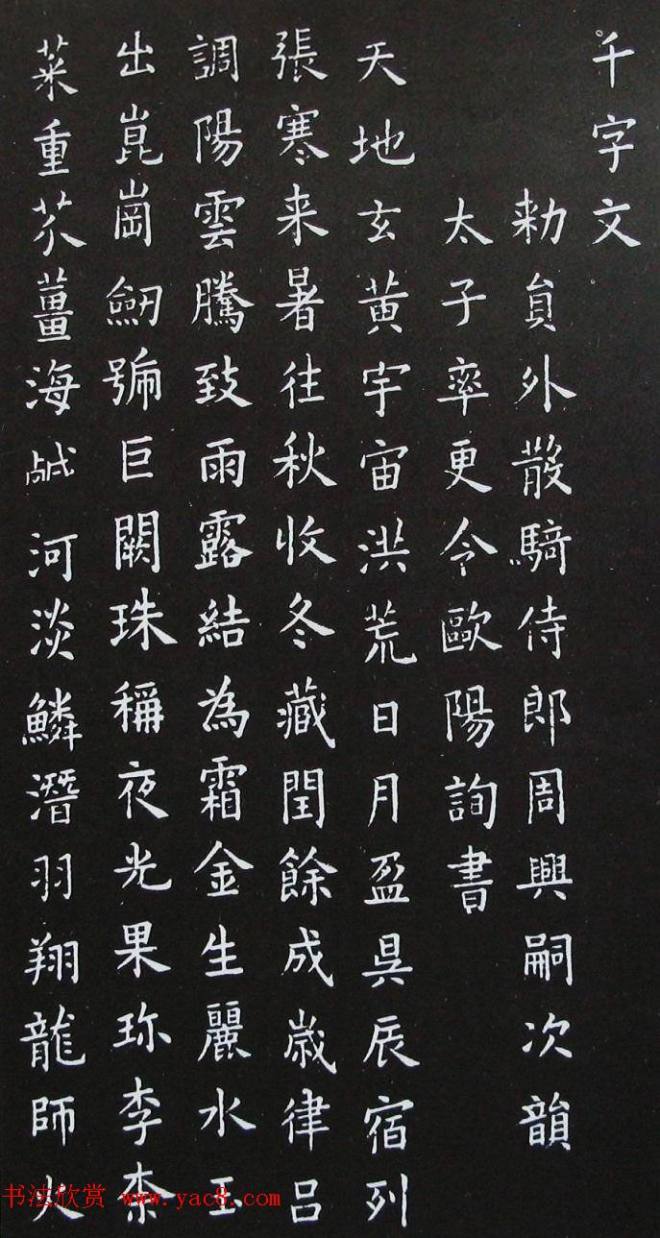 千字文
勑貟外散騎侍郎周興嗣次韻
太子率更令歐陽詢書
天地玄黃宇宙洪荒日月盈昃辰宿列
張寒来暑往秋收冬藏閏餘成歲律呂
調陽雲騰致雨露結為霜金生麗水玉
出崑崗劒號巨闕珠稱夜光果珎李柰
菜重芥薑海鹹河淡鱗潛羽翔龍師火
书法欣赏 www.yac8.com